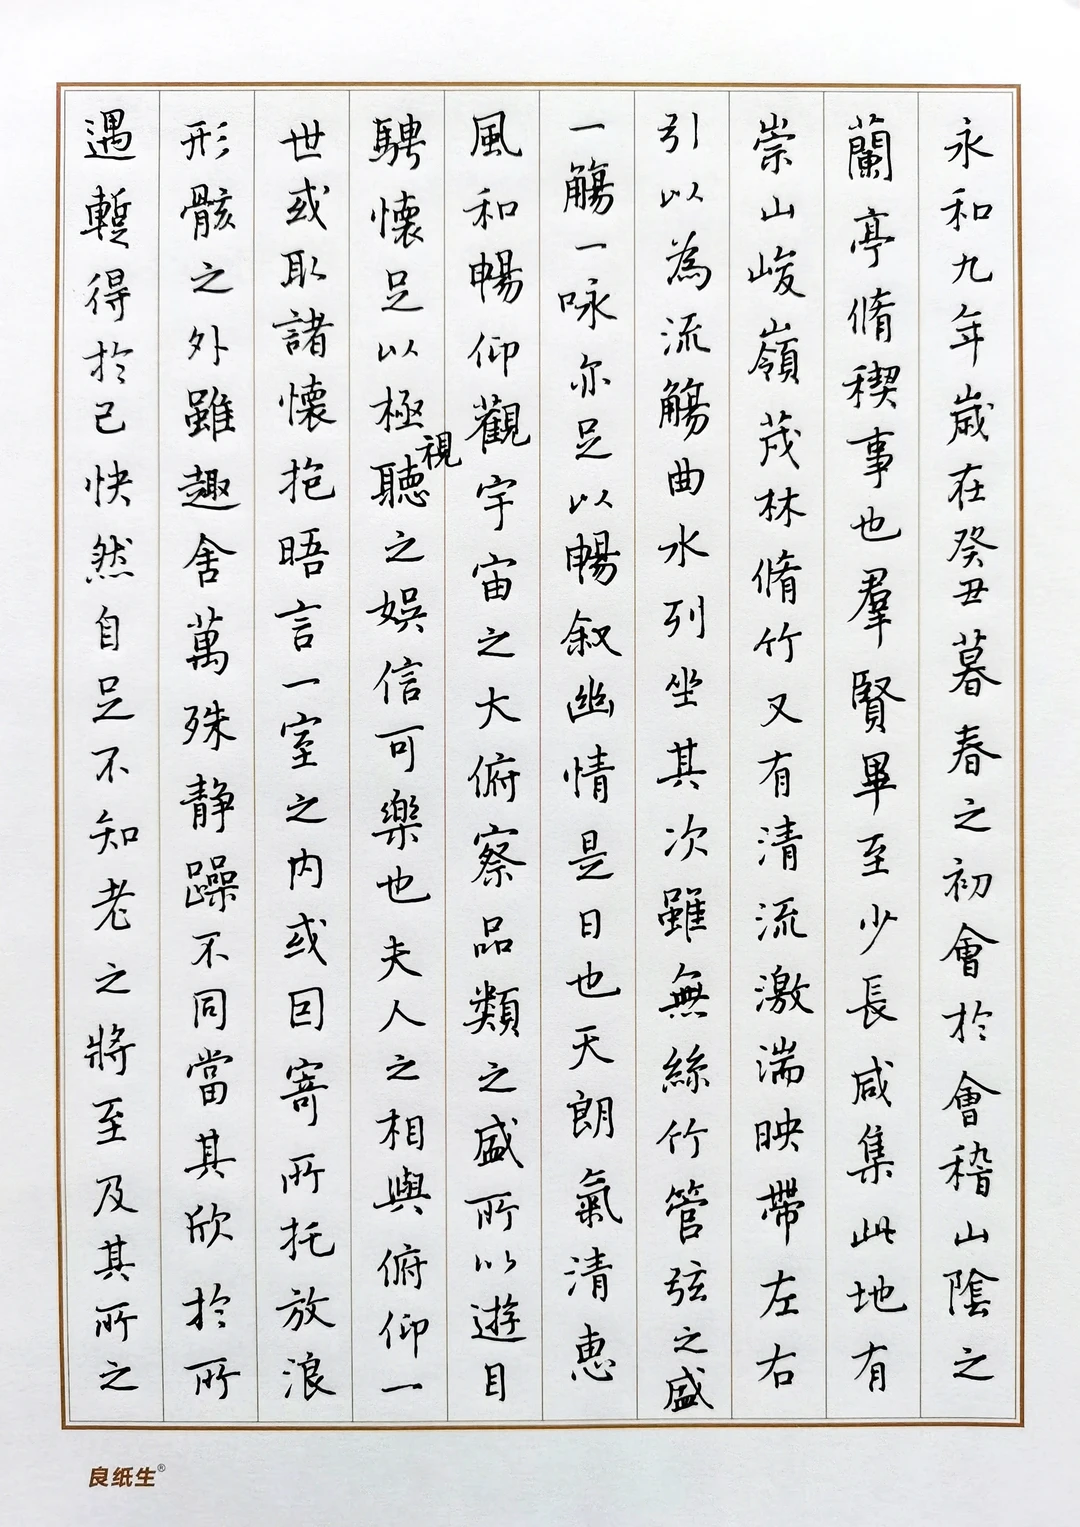 永和九年歲在癸丑暮春之初會於會稽山陰之
蘭亭脩稧事也羣賢畢至少長咸集此地有
崇山峻嶺茂林脩竹又有清流激湍映帶左右
引以為流觴曲水列坐其次雖無絲竹管弦之盛
一觴一咏亦足以暢叙幽情是日也天朗氣清惠
風和暢仰觀宇宙之大俯察品類之盛所以遊目
騁懷足以極視聽之娛信可樂也夫人之相與俯仰一
世或取諸懷抱晤言一室之內或因寄所托放浪
形骸之外雖趣舍萬殊静躁不同當其欣於所
遇蹔得於己快然自足不知老之將至及其所之
良纸生®